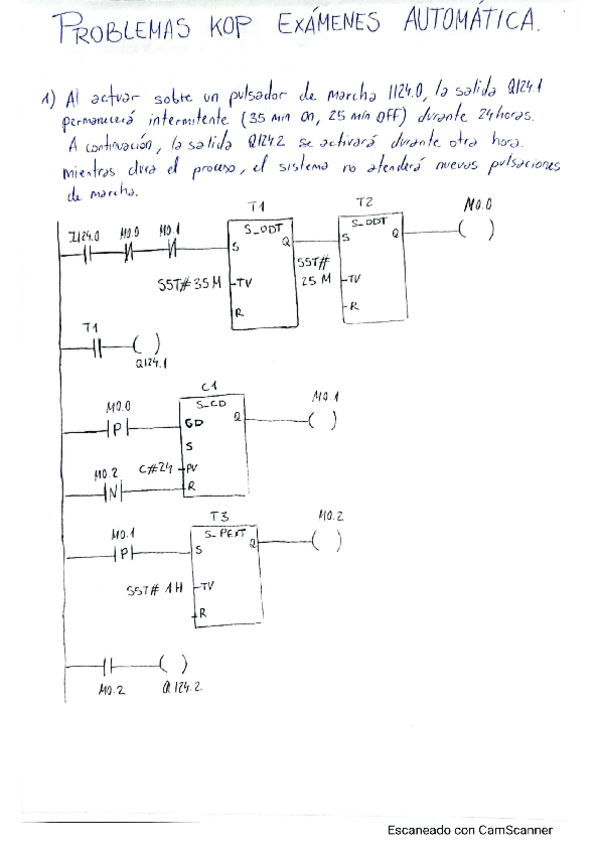 PROBLEMAS KOP EXÁMENES AUTOMÁTICA.
1) Al actuar sobre un pulsador de marcha I124.0, la salida Q124.1
permanecerá intermitente (35 min ON, 25 min OFF) durante 24 horas.
A continuación, la salida Q124.2 se activará durante otra hora.
mientras dura el proceso, el sistema no atenderá nuevas pulsaciones
de marcha.
T1 T2 M0.0
I124.0 M0.0 M0.1 S_ODT S_ODT ( )
S Q S Q
S5T# 35M TV S5T# 25M TV
R R
T1
( )
Q124.1
C1
M0.0 S_CD M0.1
P CD Q ( )
S
M0.2 C#24 PV
N R
T3 M0.2
M0.1 S_PEXT
P S Q ( )
S5T# 1H TV
R
( )
M0.2 Q124.2
Escaneado con CamScanner